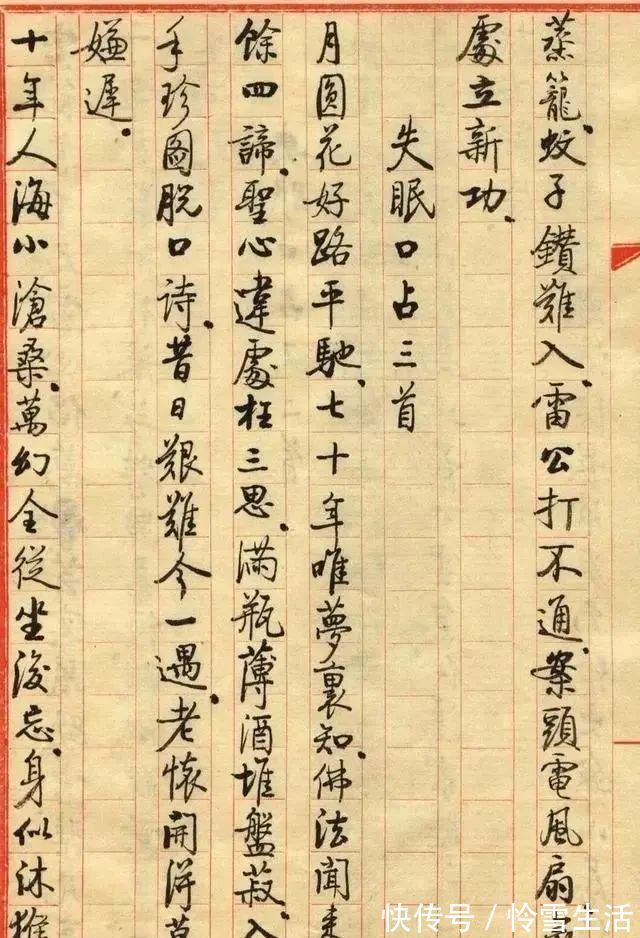 蒸籠、蚊子鑽難入、雷公打不通、案頭電風扇
處立新功、
失眠口占三首
月圓花好路平馳、七十年唯夢裏知、佛法聞來
餘四諦、聖心違處枉三思、滿瓶薄酒堆盤菽、入
手珍圖脱口诗、昔日艱難今一遇、老懷開得莫
嫌遲、
十年人海小滄桑、萬幻全從坐後忘、身似沐猴
快传号／怜雪生活